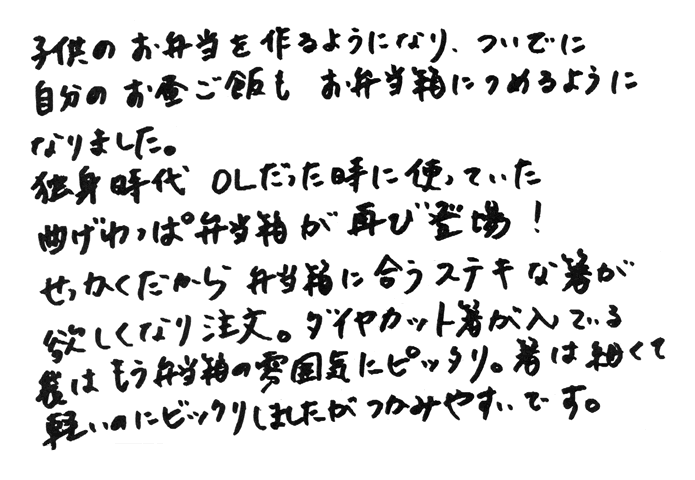 子供のお弁当を作るようになり、ついでに
自分のお昼ご飯も お弁当箱につめるように
なりました。
独身時代 OLだった時に使っていた
曲げわっぱ弁当箱が再び登場！
せっかくだから弁当箱に合うステキな箸が
欲しくなり注文。ダイヤカット箸が入ている
袋はもう弁当箱の雰囲気にピッタリ。箸は細くて
軽いのにビックリしましたがつかみやすいです。